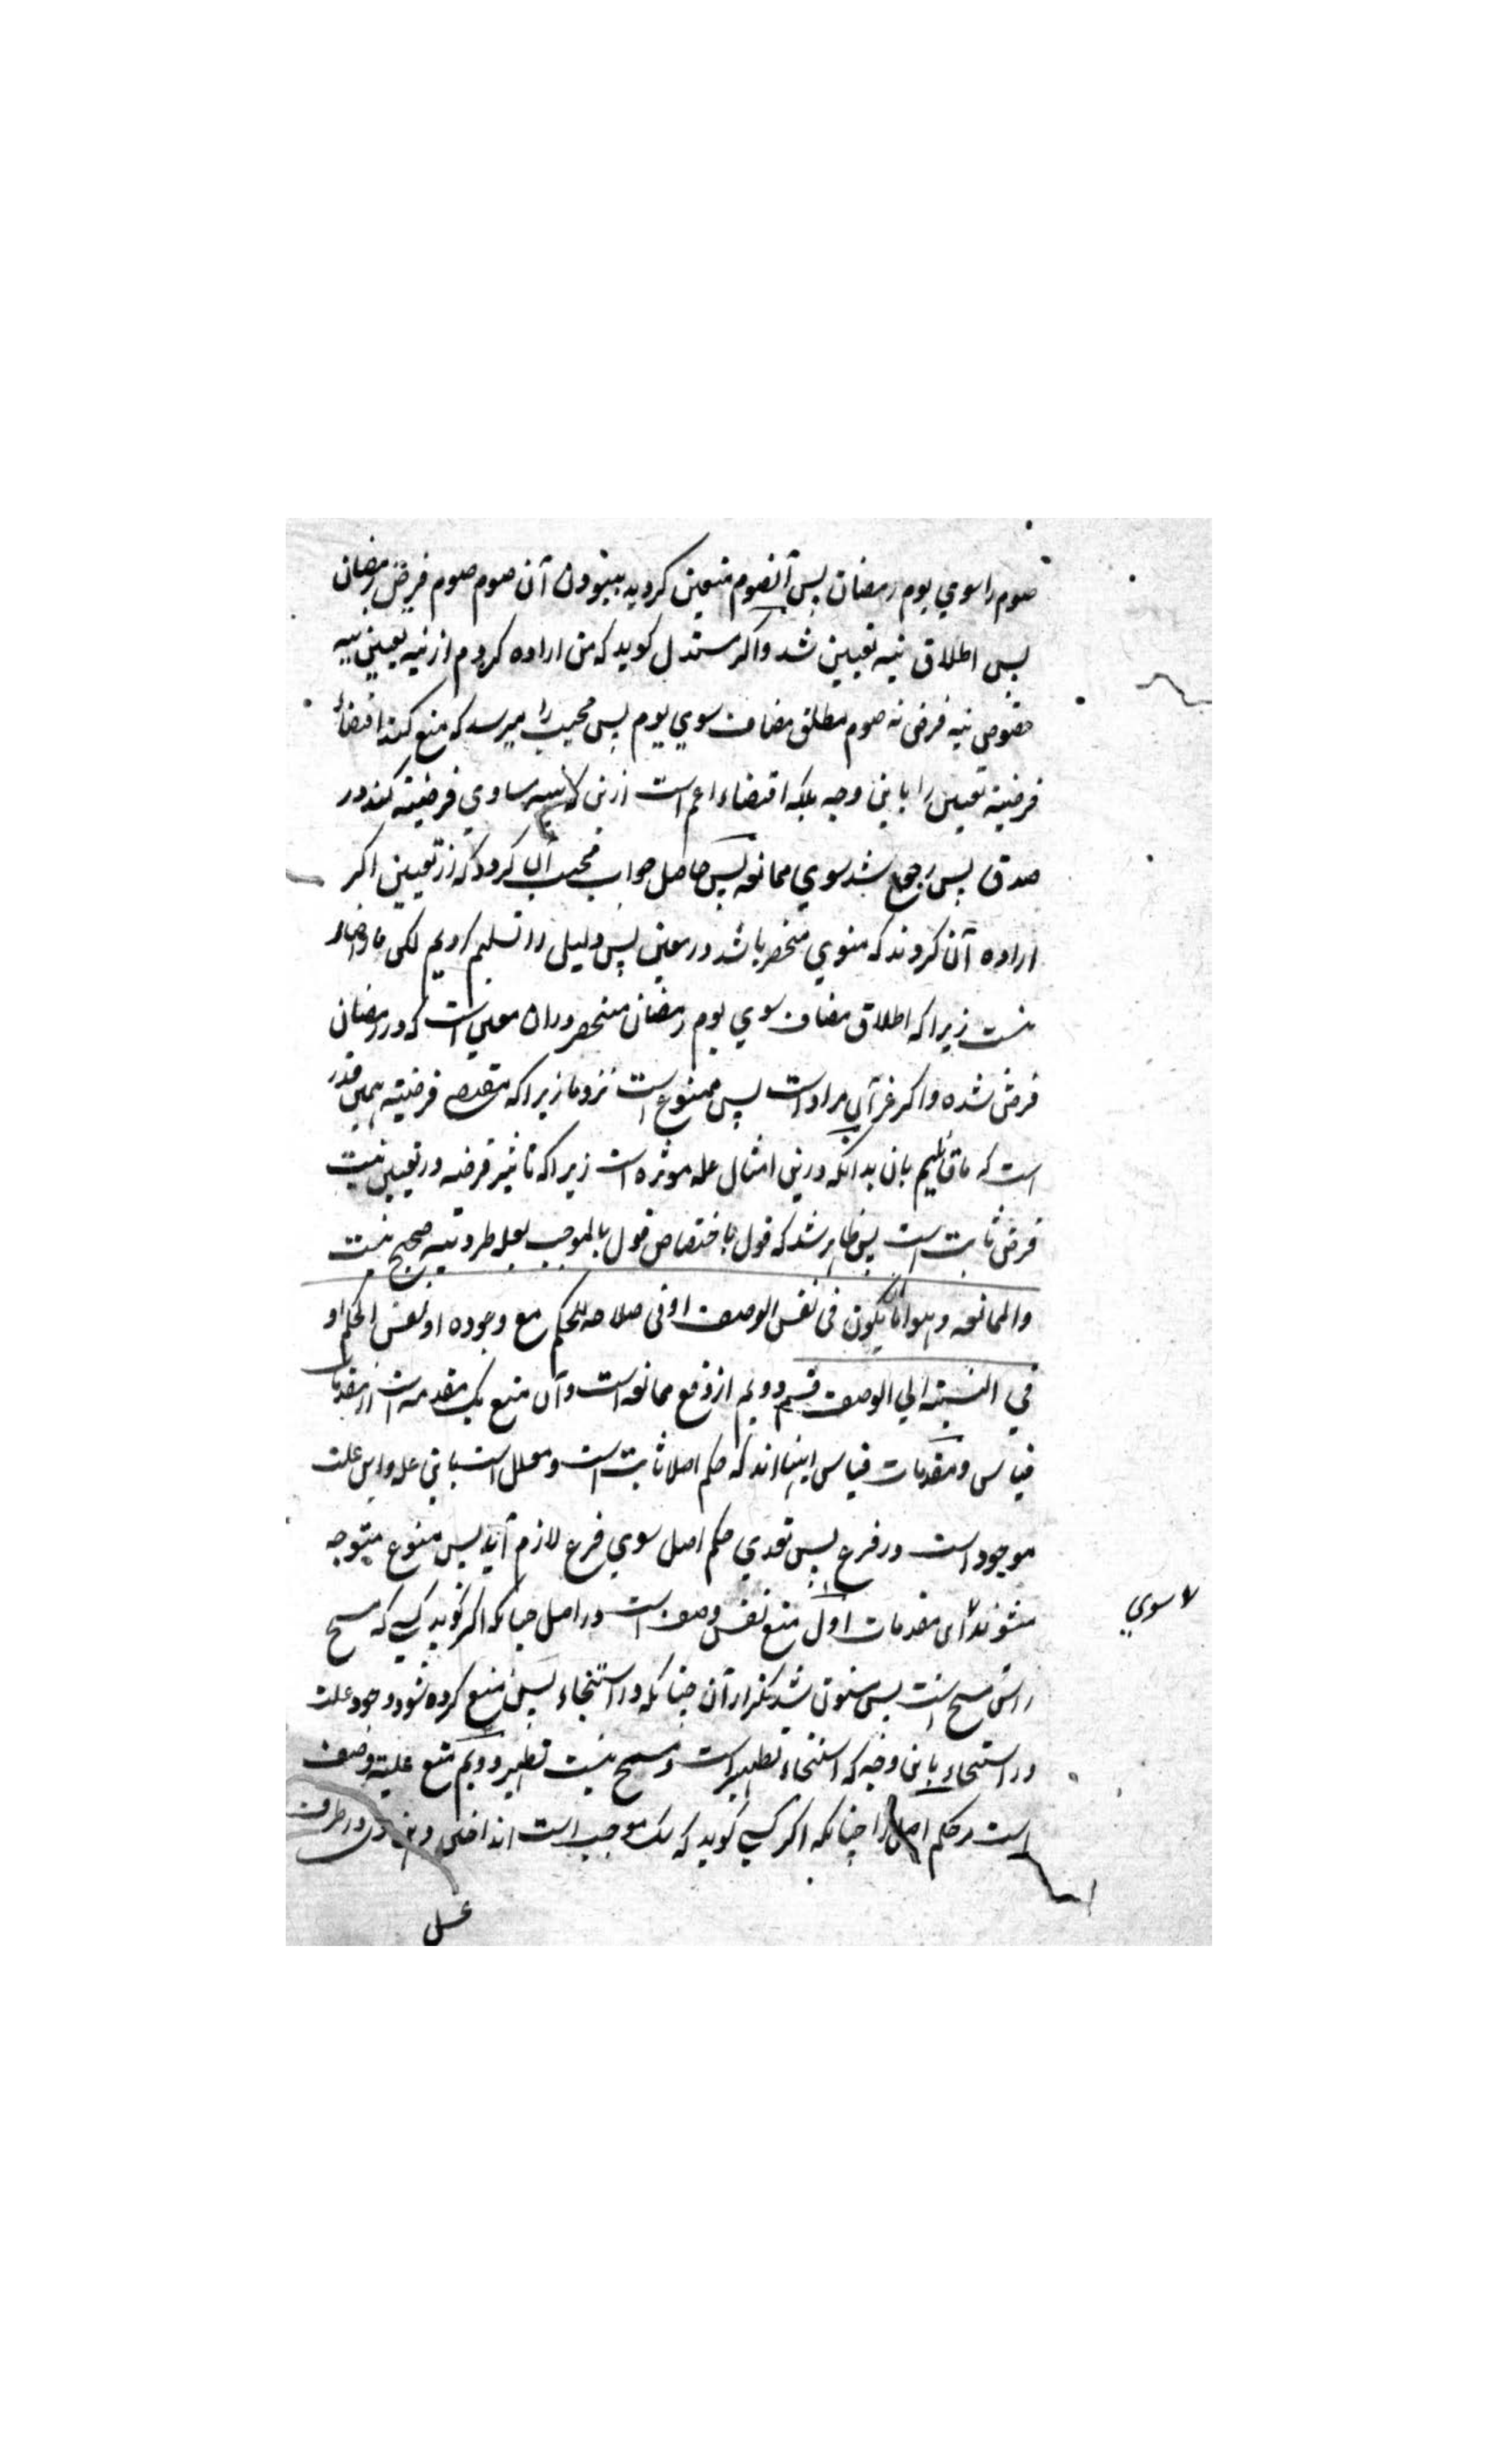 صوم را سوي يوم رمضان پس آنصوم متعين کرديد ببودن آن صوم صوم فرض رمضان
پس اطلاق نيه تعيين شد واکر مستدل کويد که من اراده کردم از نيه تعيين نيه
خصوص نيه فرض نه صوم مطلق مضاف سوي يوم پس مجيب را ميرسد که منع کند اقتضاء
فرضية تعيين را باين وجه بلکه اقتضاء اعم است ازين که مساوي فرضيته کند در
صدق پس رجوع شد سوي ممانعه پس حاصل جواب مجيب کرد که از تعيين اکر
اراده آن کردند که منوي منحصر باشد در معين پس دليل را تسليم کرديم لکن
نيست زيرا که اطلاق مضاف سوي يوم رمضان منحصر در ان معين است که در رمضان
فرض شده واکر غير آن مراد است پس ممنوع است نزد ما زيرا که فرضيته همين قدر
است که ما قائليم بان بدانکه درين امثال عله موثره است زيرا که تاثير فرضه در تعيين نيت
فرض ثابت است پس ظاهر شد که قول باختصاص قول بالموجب بعله طرديه صحيح نيست
والممانعه وهو اما ان يکون في نفس الوصف او في صلاحه للحکم مع وجوده او نفس الحکم او
في النسبته الي الوصف قسم دويم از دفع ممانعه است وآن منع يک مقدمه است از مقدمات
قياس ومقدمات قياس اينها اند که حکم اصل ثابت است ومعلل است باين عله واين علت
موجود است در فرع پس تعدي حکم اصل سوي فرع لازم آيد پس منوع متوجه
ميشوند اين مقدمات اول منع نفس وصف است در اصل چنانکه اکر کويد کسي که مسح
لا سوي
راس مسح است پس مسنون شد تکرار آن چنانکه در استنجاء پس منع کرده شود وجود علت
در استنجاء باين وجه که استنجاء تطهير است ومسح نيست تطهير دويم منع علية وصف
است مر حکم اصل را چنانکه اکر کسي کويد که موجب است در طرف
غسل